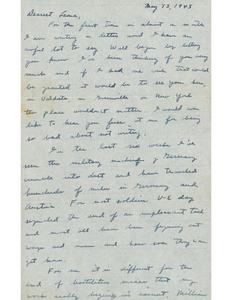 May 13, 1945
Dearest Lena,
For the first time in about a month
I am writing a letter and I have an
awful lot to say. Will begin by telling
you know I've been thinking of you very
much and if I had one wish that would
be granted it would be to see you here
in or New York
the place wouldn't matter. I would even
like to hear you me for being
so bad about not writing.
In the last six weeks I've
seen the military machine of Germany
crumble into dust and have traveled
hundreds of miles in Germany and
Austria. For most soldiers V-E day
signified the end of an unpleasant task
and most all have been figuring out
ways and means and how soon they can
get home.
For me it is different for the
end of hostilities means that my
work really begins in earnest. Millions